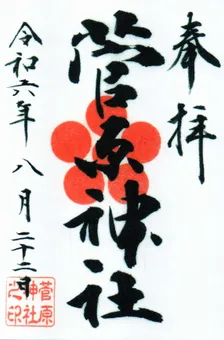 奉拝
菅原神社
令和六年八月二十二日
菅原
神社
之印